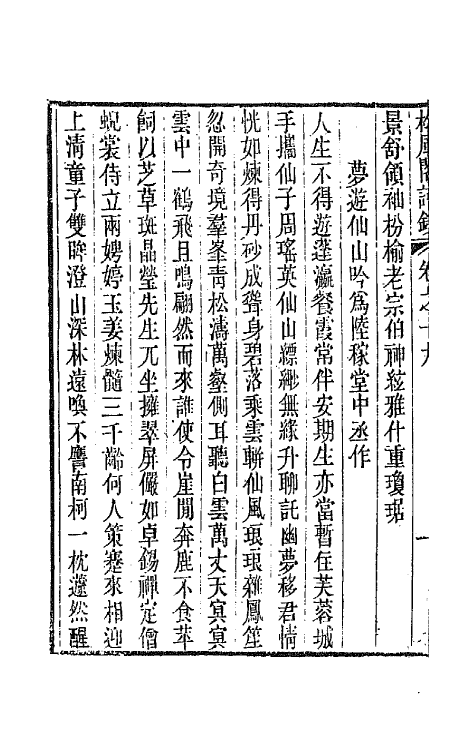 松風閣詩鈔 卷之十九
景舒領袖枌榆老宗伯神紘雅什重瓊琚
夢遊仙山吟爲陸稼堂中丞作
人生不得遊蓬瀛餐霞常伴安期生亦當暫住芙蓉城
手攜仙子周瑤英仙山縹緲無緣升聊託幽夢移君情
恍如煉得丹砂成聳身碧落乘雲軿仙風琅琅雜鳳笙
忽開奇境羣峯靑松濤萬壑側耳聽白雲萬丈天冥冥
雲中一鶴飛且鳴翩然而來誰使令崖閒奔鹿不食苹
飼以芝草斑晶瑩先生兀坐擁翠屏儼如卓錫禪定僧
蜺裳侍立兩娉婷玉姜煉髓三千齡何人策蹇來相迎
上淸童子雙眸澄山深林遠喚不譍南柯一枕蘧然醒